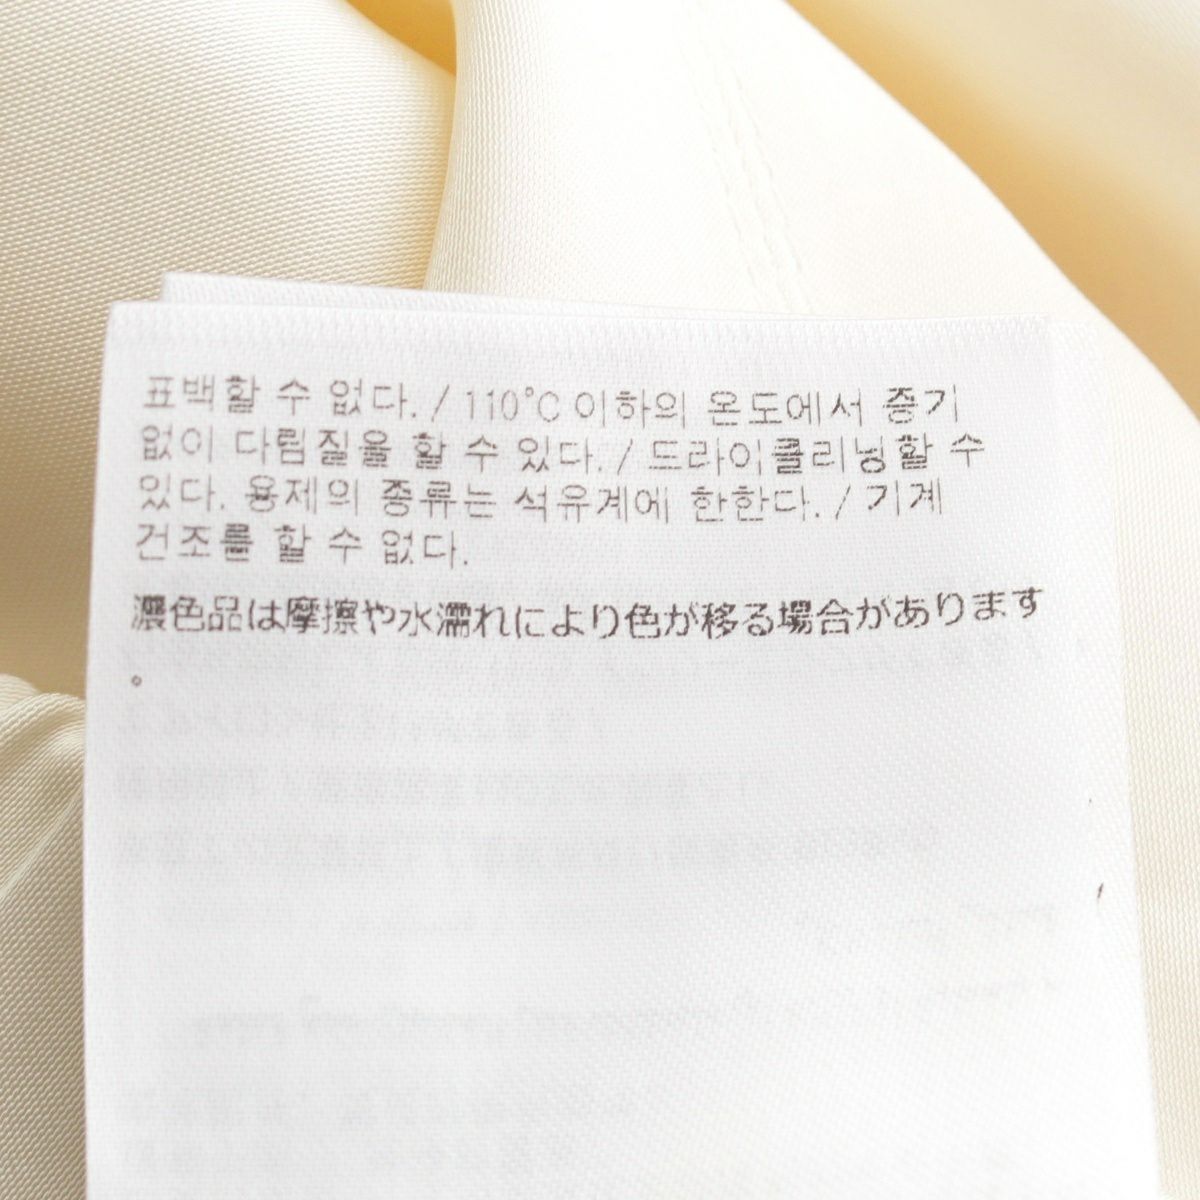 표백할 수 없다. / 110°C 이하의 온도에서 증기
없이 다림질을 할 수 있다. / 드라이클리닝할 수
있다. 용제의 종류는 석유계에 한한다. / 기계
건조를 할 수 없다.
濃色品は摩擦や水濡れにより色が移る場合があります
。